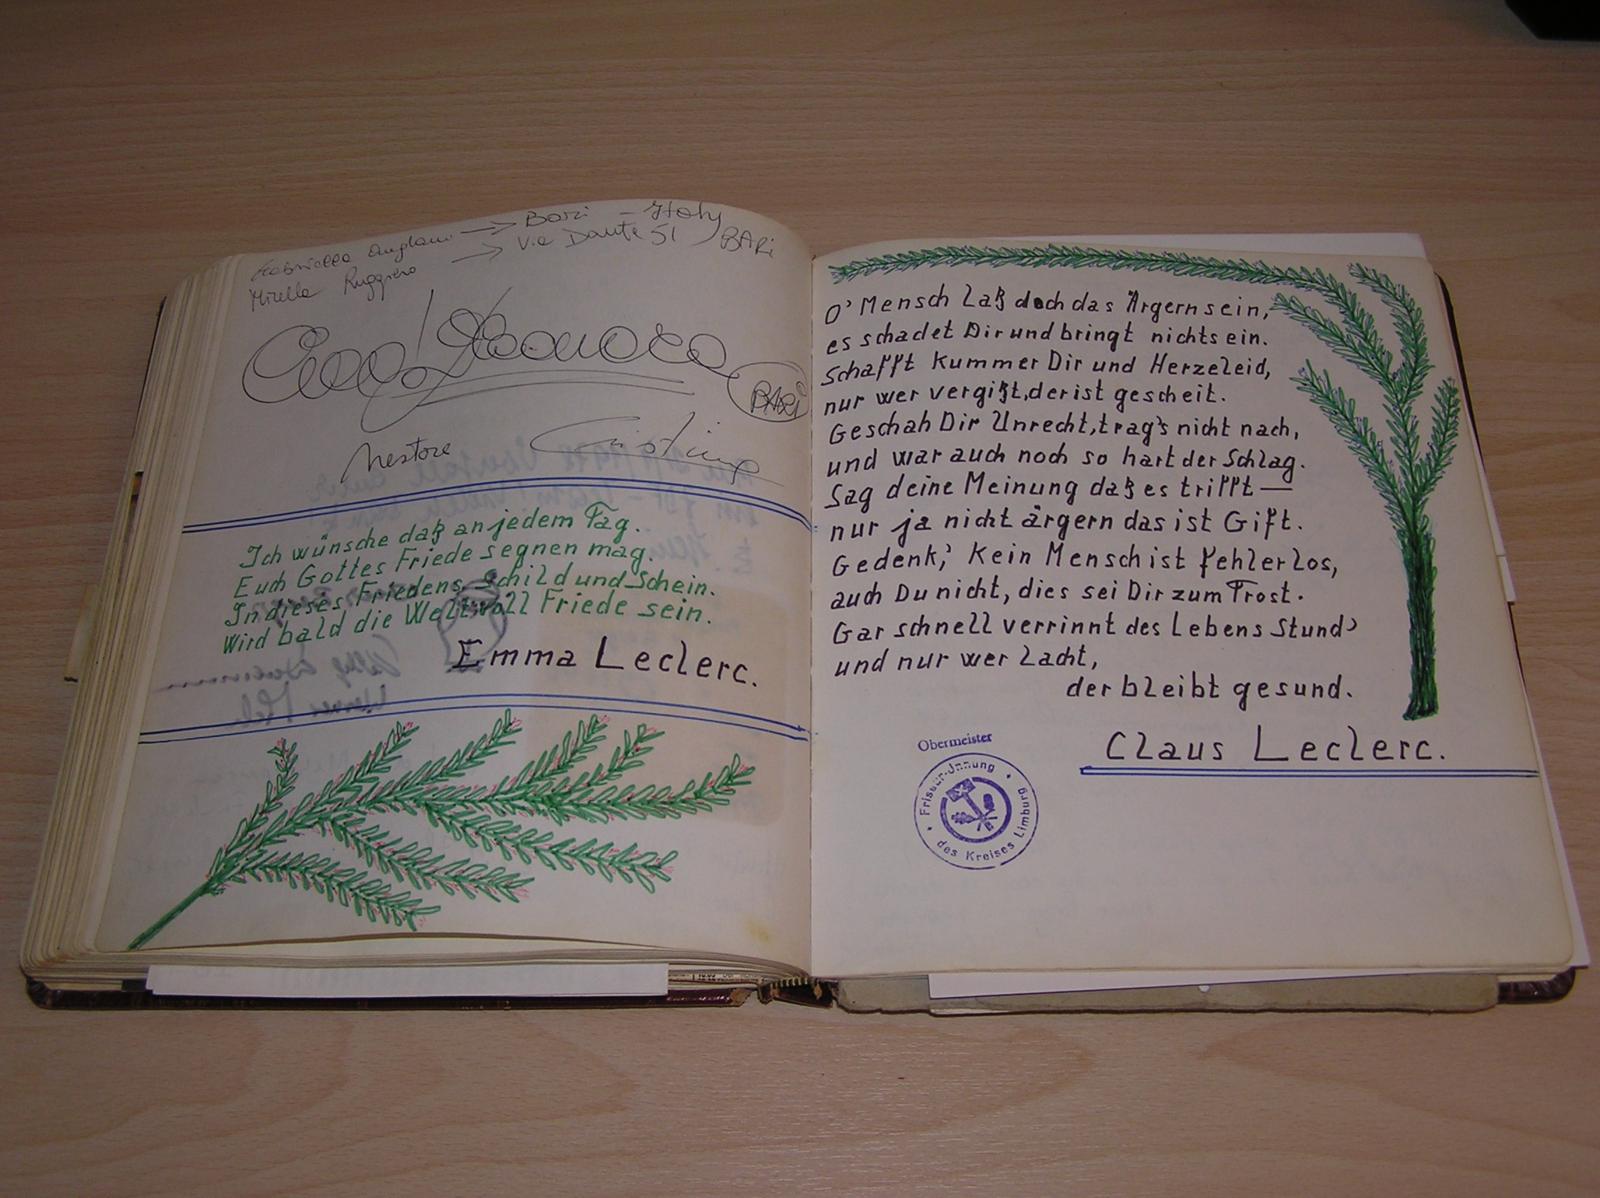 Gabriella → Bari - Italy
Mirella Ruggiero → Via Dante 51 BARi
BARi
Nestore Cristina
Ich wünsche daß an jedem Tag.
Euch Gottes Friede segnen mag.
In dieses Friedens, Schild und Schein.
Wird bald die Welt voll Friede sein.
Emma Leclerc.
O' Mensch Laß doch das Ärgern sein,
es schadet Dir und bringt nichts ein.
Schafft Kummer Dir und Herzeleid,
nur wer vergißt, der ist gescheit.
Geschah Dir Unrecht, trag's nicht nach,
und war auch noch so hart der Schlag.
Sag deine Meinung daß es trifft —
nur ja nicht ärgern das ist Gift.
Gedenk,' Kein Mensch ist fehlerlos,
auch Du nicht, dies sei Dir zum Trost.
Gar schnell verrinnt des Lebens Stund'
und nur wer Lacht,
der bleibt gesund.
Claus Leclerc.
Obermeister
Friseur-Innung
des Kreises Limburg